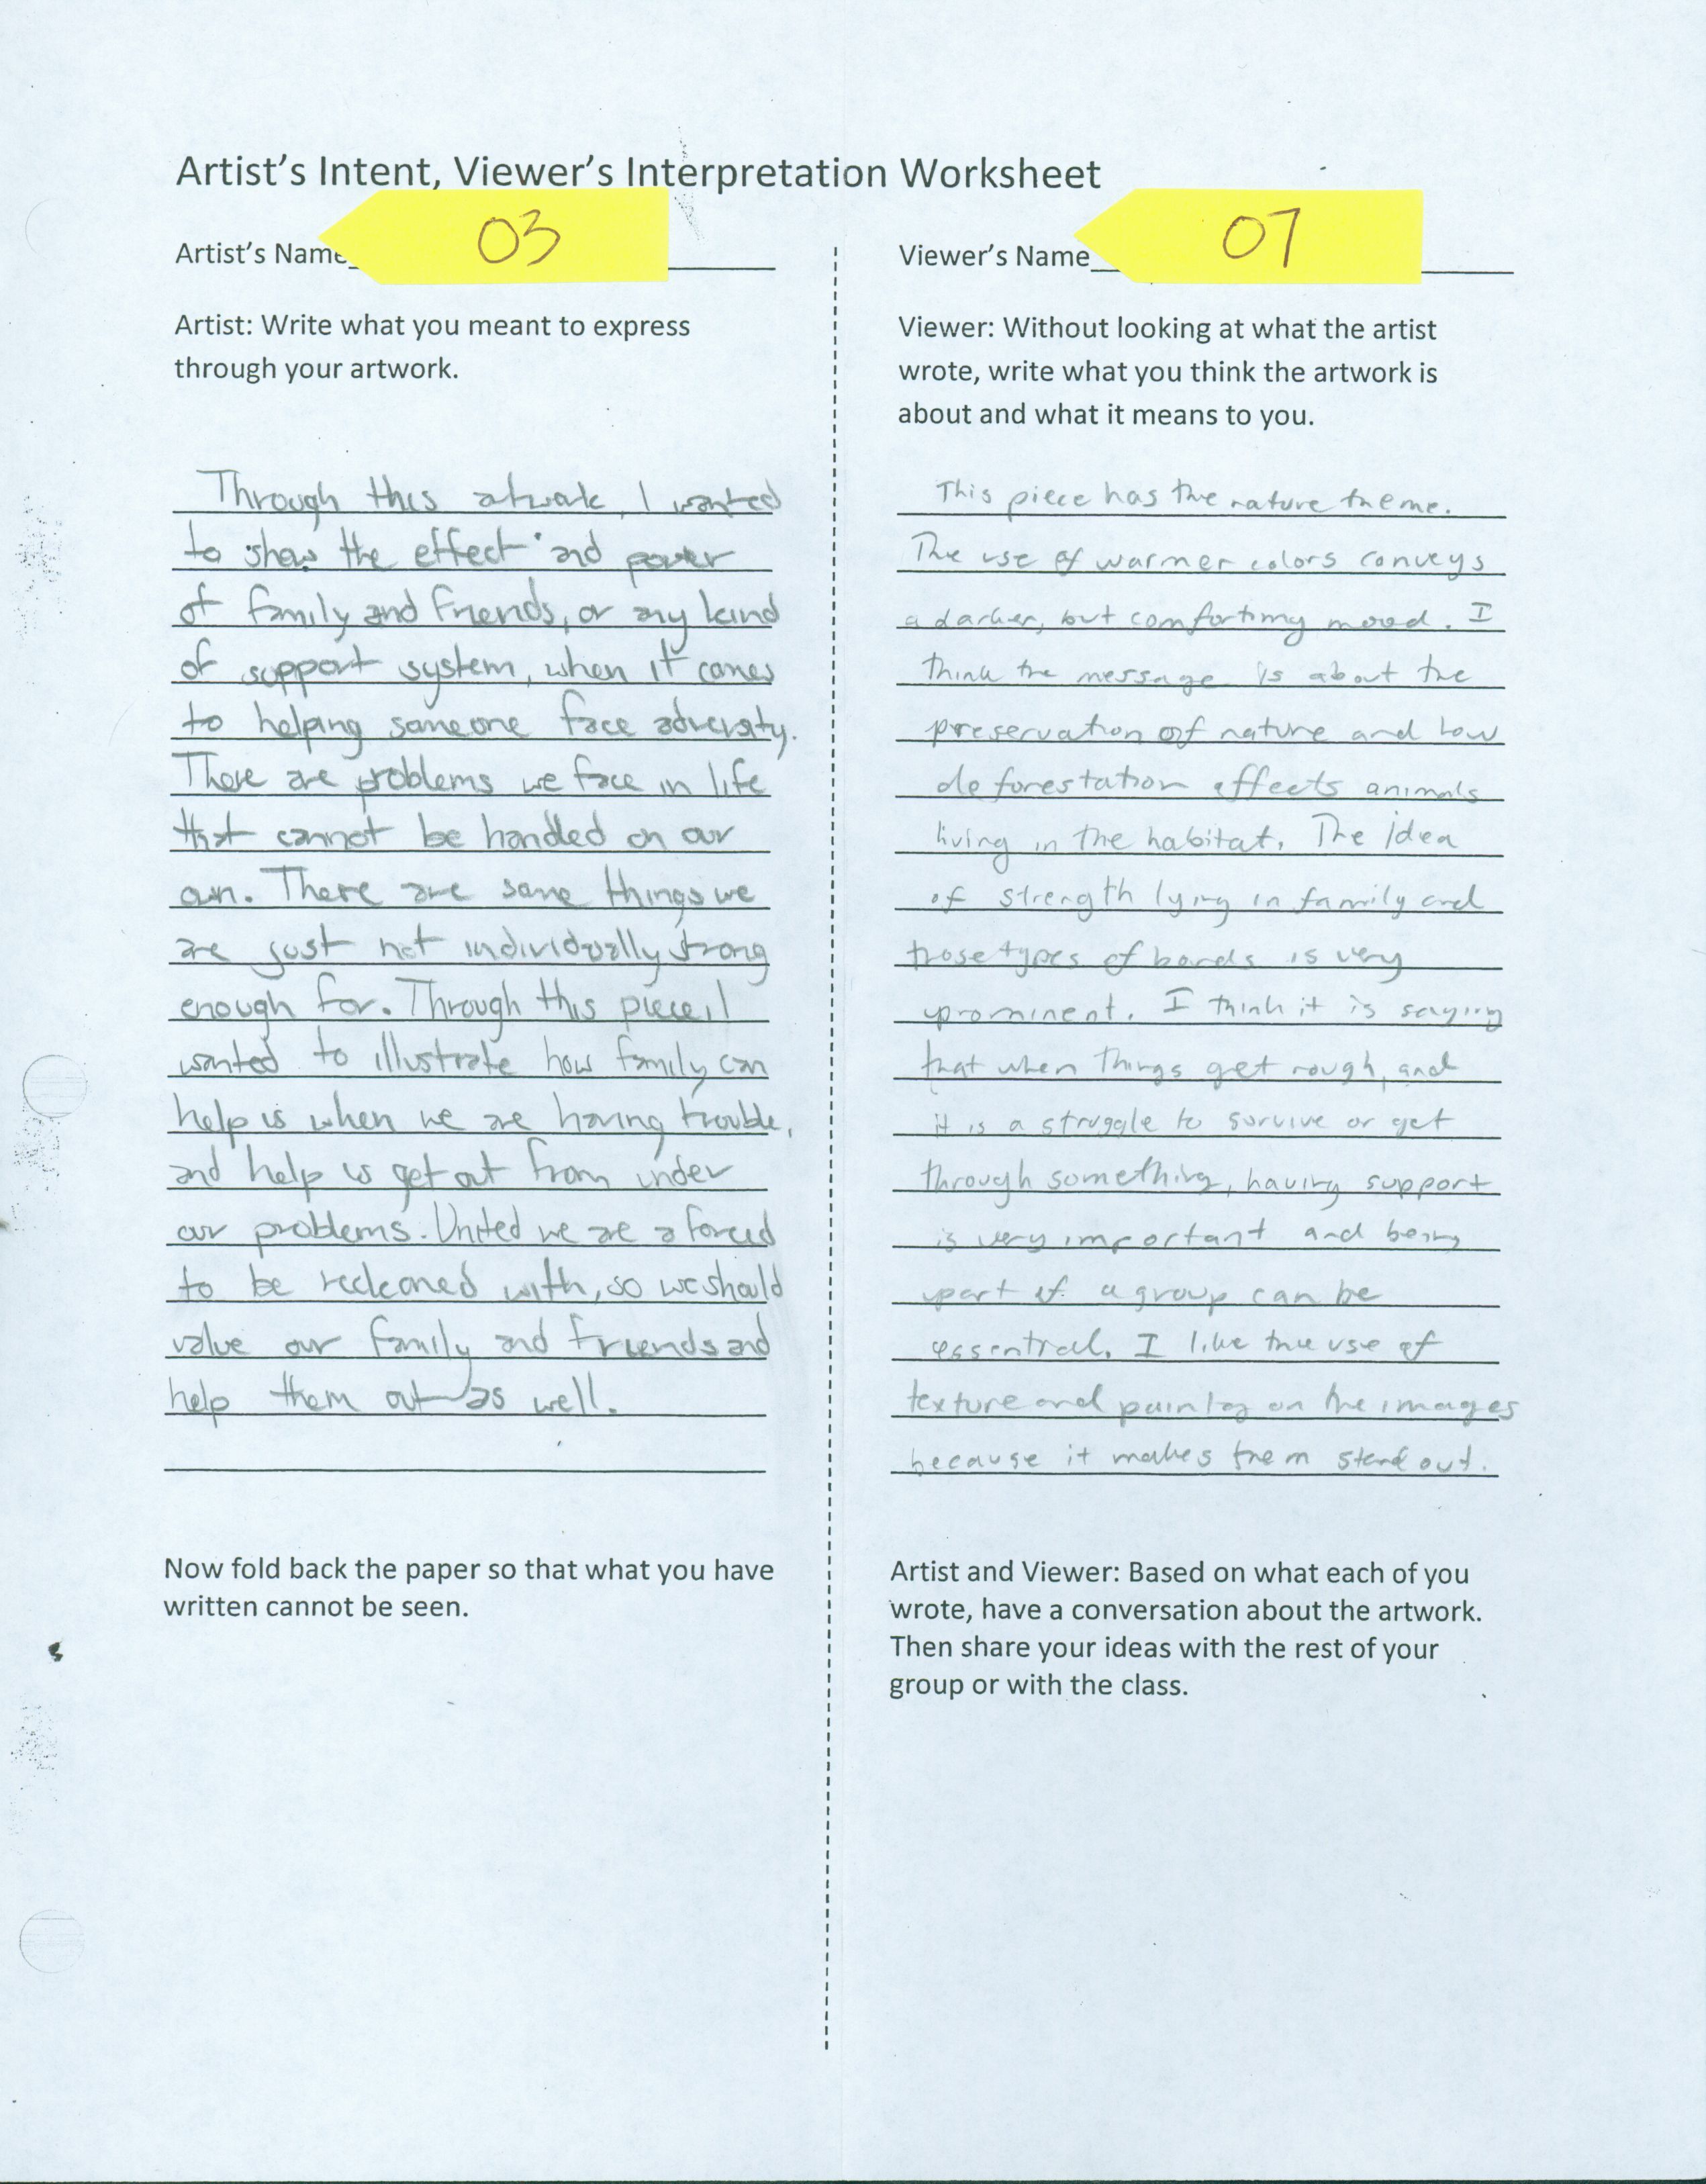 Artist's Intent, Viewer's Interpretation Worksheet
Artist's Name 03
Artist: Write what you meant to express
through your artwork.
Through this artwork, I wanted
to show the effect and power
of family and friends, or any kind
of support system, when it comes
to helping someone face adversity.
There are problems we face in life
that cannot be handled on our
own. There are some things we
are just not individually strong
enough for. Through this piece, I
wanted to illustrate how family can
help us when we are having trouble,
and help us get out from under
our problems. United we are a forced
to be reckoned with, so we should
value our family and friends and
help them out as well.
Now fold back the paper so that what you have
written cannot be seen.
Viewer's Name 07
Viewer: Without looking at what the artist
wrote, write what you think the artwork is
about and what it means to you.
This piece has the nature theme.
The use of warmer colors conveys
a darker, but comforting mood. I
think the message is about the
preservation of nature and how
deforestation effects animals
living in the habitat. The idea
of strength lying in family and
those types of bonds is very
prominent. I think it is saying
that when things get rough, and
it is a struggle to survive or get
through something, having support
is very important and being
part of a group can be
essential. I like the use of
texture and painting on the images
because it makes them stand out.
Artist and Viewer: Based on what each of you
wrote, have a conversation about the artwork.
Then share your ideas with the rest of your
group or with the class.